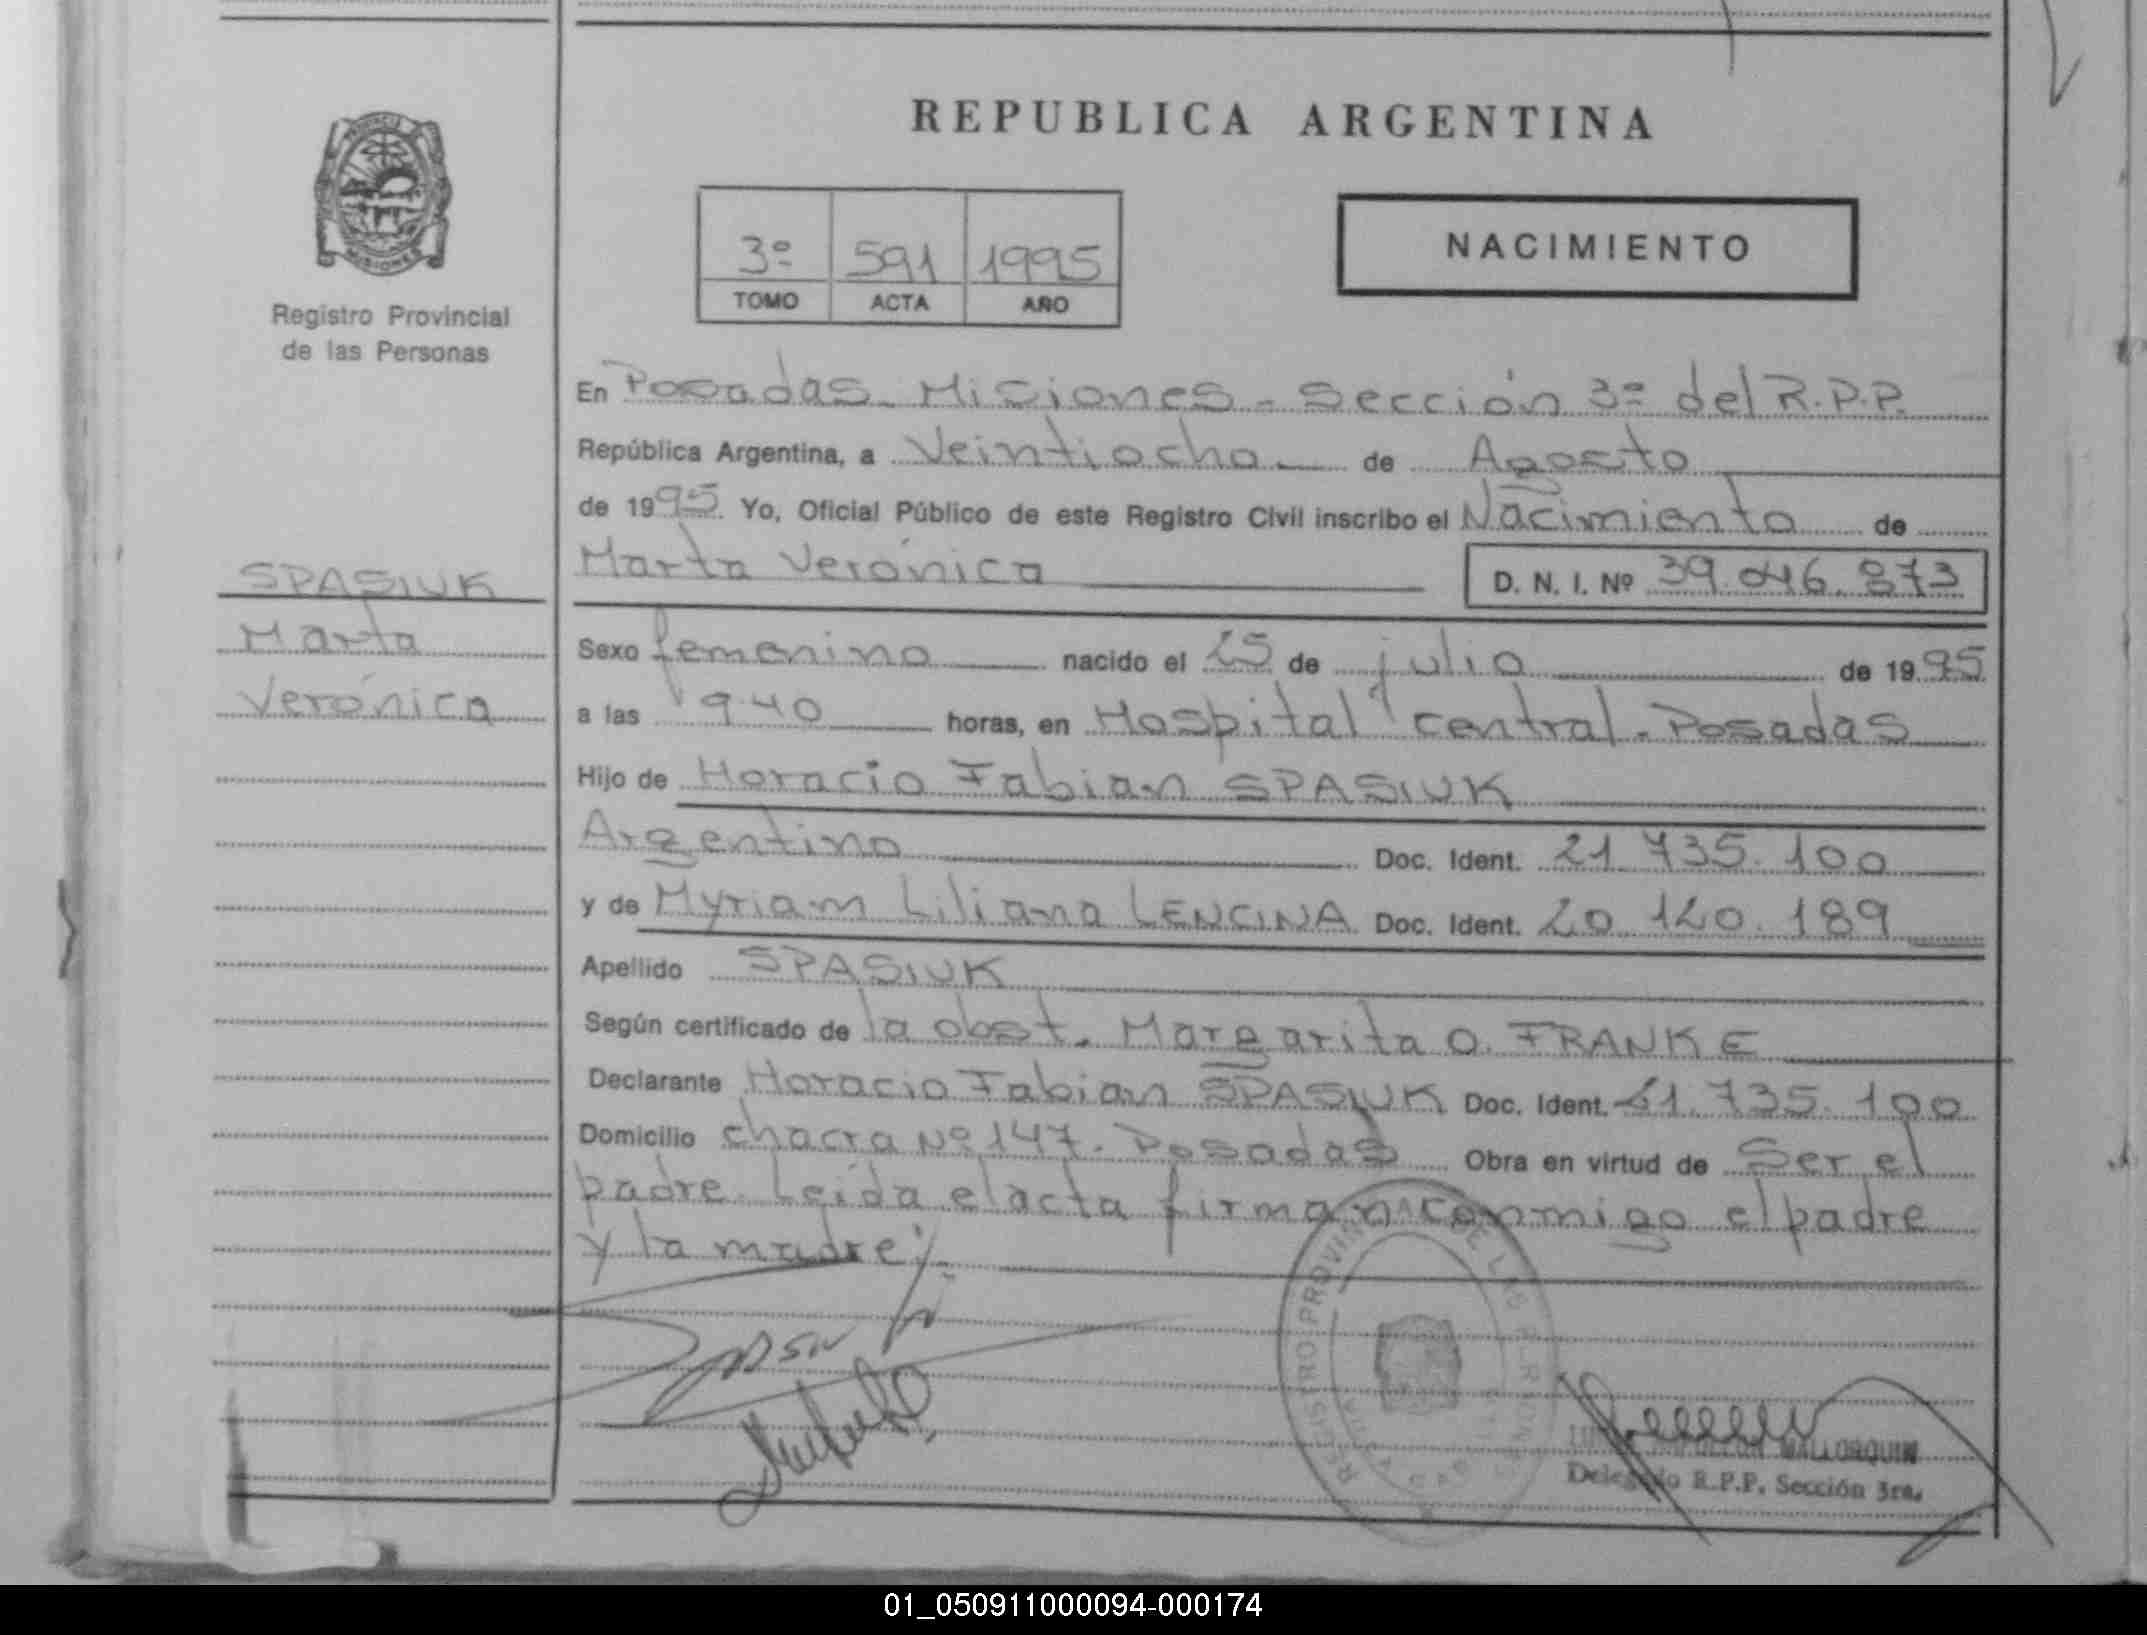 REPUBLICA ARGENTINA
PROVINCIA
MISIONES
Registro Provincial
de las Personas
3º 591 1995
TOMO ACTA AÑO
NACIMIENTO
En Posadas - Misiones - Sección 3º del R.P.P.
República Argentina, a Veintiocho de Agosto
de 1995. Yo, Oficial Público de este Registro Civil inscribo el Nacimiento de
Marta Verónica D. N. I. Nº 39.046.873
SPASIUK
Marta
Verónica
Sexo femenino nacido el 25 de julio de 1995
a las 9 40 horas, en Hospital central - Posadas
Hijo de Horacio Fabian SPASIUK
Argentino Doc. Ident. 21.735.100
y de Myriam Liliana LENCINA Doc. Ident. 20.120.189
Apellido SPASIUK
Según certificado de la obst. Margarita O. FRANKE
Declarante Horacio Fabian SPASIUK Doc. Ident. 21.735.100
Domicilio chacra Nº 147 - Posadas Obra en virtud de Ser el
padre. Leída el acta firman conmigo el padre
y la madre.
REGISTRO PROVINCIAL DE LAS PERSONAS
MALLORQUIN
Delegado R.P.P. Sección 3ra.
01_050911000094-000174